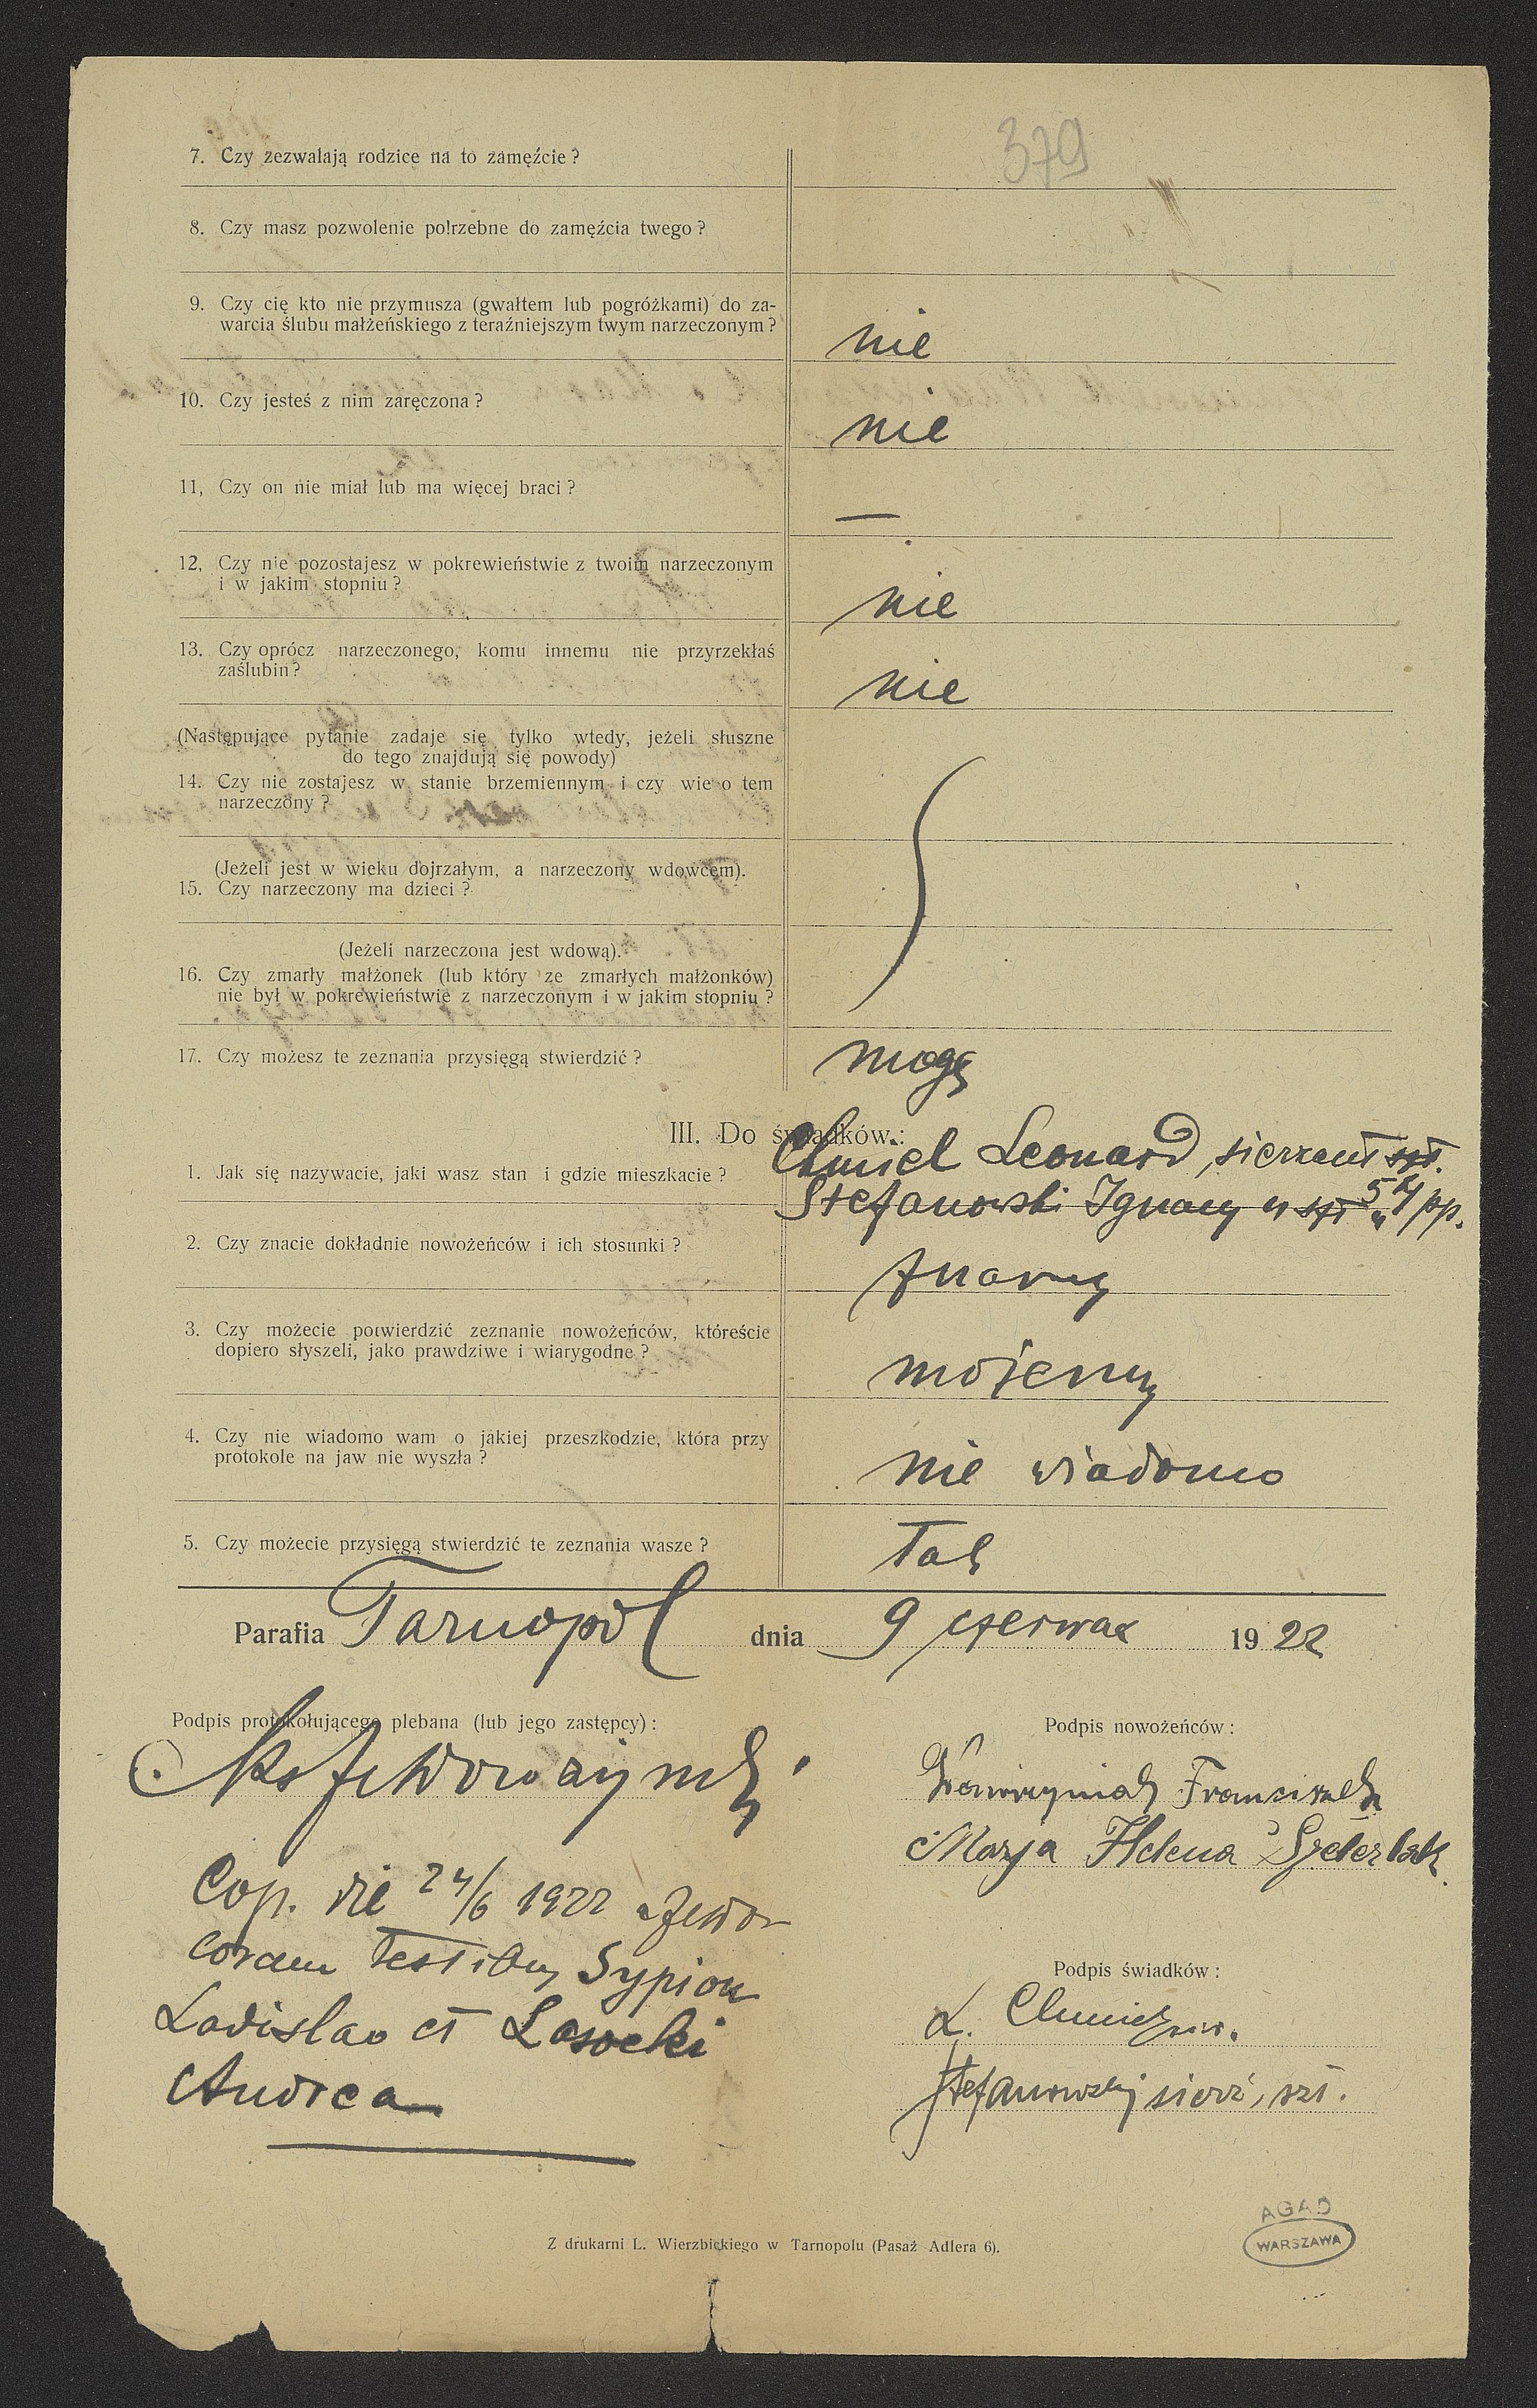 379
7. Czy zezwalają rodzice na to zamęźcie ?
8. Czy masz pozwolenie potrzebne do zamęźcia twego ?
9. Czy cię kto nie przymusza (gwałtem lub pogróżkami) do za-
warcia ślubu małżeńskiego z teraźniejszym twym narzeczonym ?
nie
10. Czy jesteś z nim zaręczona ?
nie
11, Czy on nie miał lub ma więcej braci ?
—
12, Czy nie pozostajesz w pokrewieństwie z twoim narzeczonym
i w jakim stopniu ?
nie
13. Czy oprócz narzeczonego, komu innemu nie przyrzekłaś
zaślubin ?
nie
(Następujące pytanie zadaje się tylko wtedy, jeżeli słuszne
do tego znajdują się powody)
14. Czy nie zostajesz w stanie brzemiennym i czy wie o tem
narzeczony ?
(Jeżeli jest w wieku dojrzałym, a narzeczony wdowcem).
15. Czy narzeczony ma dzieci ?
(Jeżeli narzeczona jest wdową).
16. Czy zmarły małżonek (lub który ze zmarłych małżonków)
nie był w pokrewieństwie z narzeczonym i w jakim stopniu ?
17. Czy możesz te zeznania przysięgą stwierdzić ?
mogę
III. Do świadków :
Chmiel Leonard, sierżant szt.
1. Jak się nazywacie, jaki wasz stan i gdzie mieszkacie ?
Stefanowski Ignacy " szt " pp.
2. Czy znacie dokładnie nowożeńców i ich stosunki ?
znamy
3. Czy możecie potwierdzić zeznanie nowożeńców, któreście
dopiero słyszeli, jako prawdziwe i wiarygodne ?
możemy
4. Czy nie wiadomo wam o jakiej przeszkodzie, która przy
protokole na jaw nie wyszła ?
nie wiadomo
5. Czy możecie przysięgą stwierdzić te zeznania wasze ?
Tak
Parafia Tarnopol dnia 9 czerwca 1922
Podpis protokołującego plebana (lub jego zastępcy) :
Podpis nowożeńców :
Wawrzyniak Franciszek
Marja Helena
Cop. die 24/6 1922
coram testibus Sypion
Ladislao et Lasocki
Andrea
Podpis świadków :
L. Chmiel
Stefanowski sierż, szt.
Z drukarni L. Wierzbickiego w Tarnopolu (Pasaż Adlera 6).
AGAD
WARSZAWA